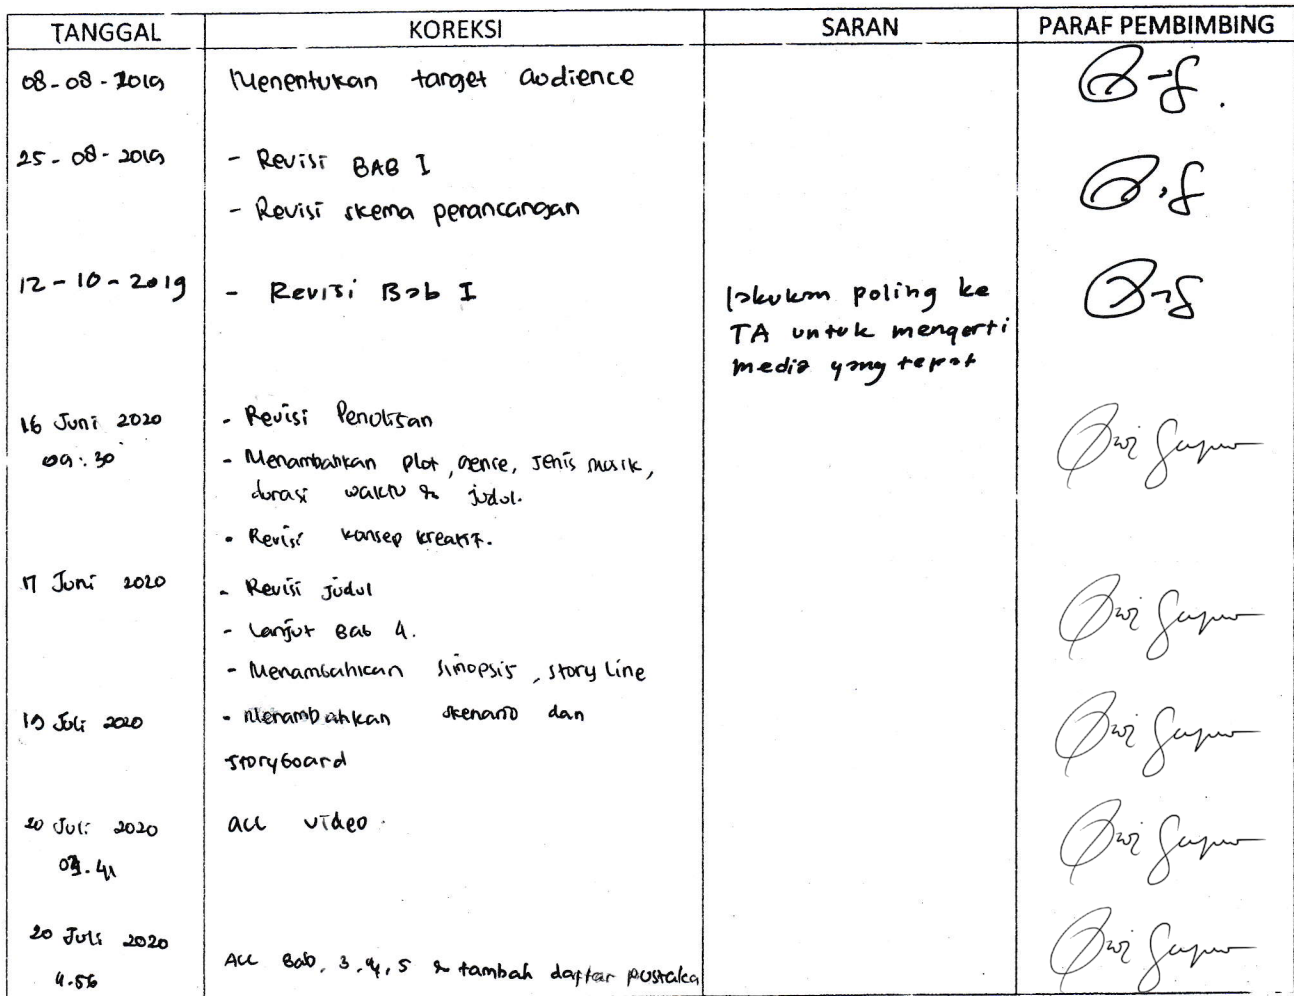 TANGGAL KOREKSI SARAN PARAF PEMBIMBING
08-08-2019 Menentukan target audience
25-08-2019 - Revisi BAB I
- Revisi skema perancangan
12-10-2019 - Revisi Bab I lakukan poling ke
TA untuk mengerti
media yang tepat
16 Juni 2020 - Revisi Penulisan
09:30 - Menambahkan plot, genre, Jenis musik,
durasi waktu & judul.
- Revisi konsep kreatif.
17 Juni 2020 - Revisi judul
- Lanjut Bab 4.
- Menambahkan sinopsis, story line
19 Juli 2020 - Menambahkan skenario dan
storyboard
20 Juli 2020 acc video
20 Juli 2020
4.56 Acc Bab, 3, 4, 5 & tambah daftar pustaka